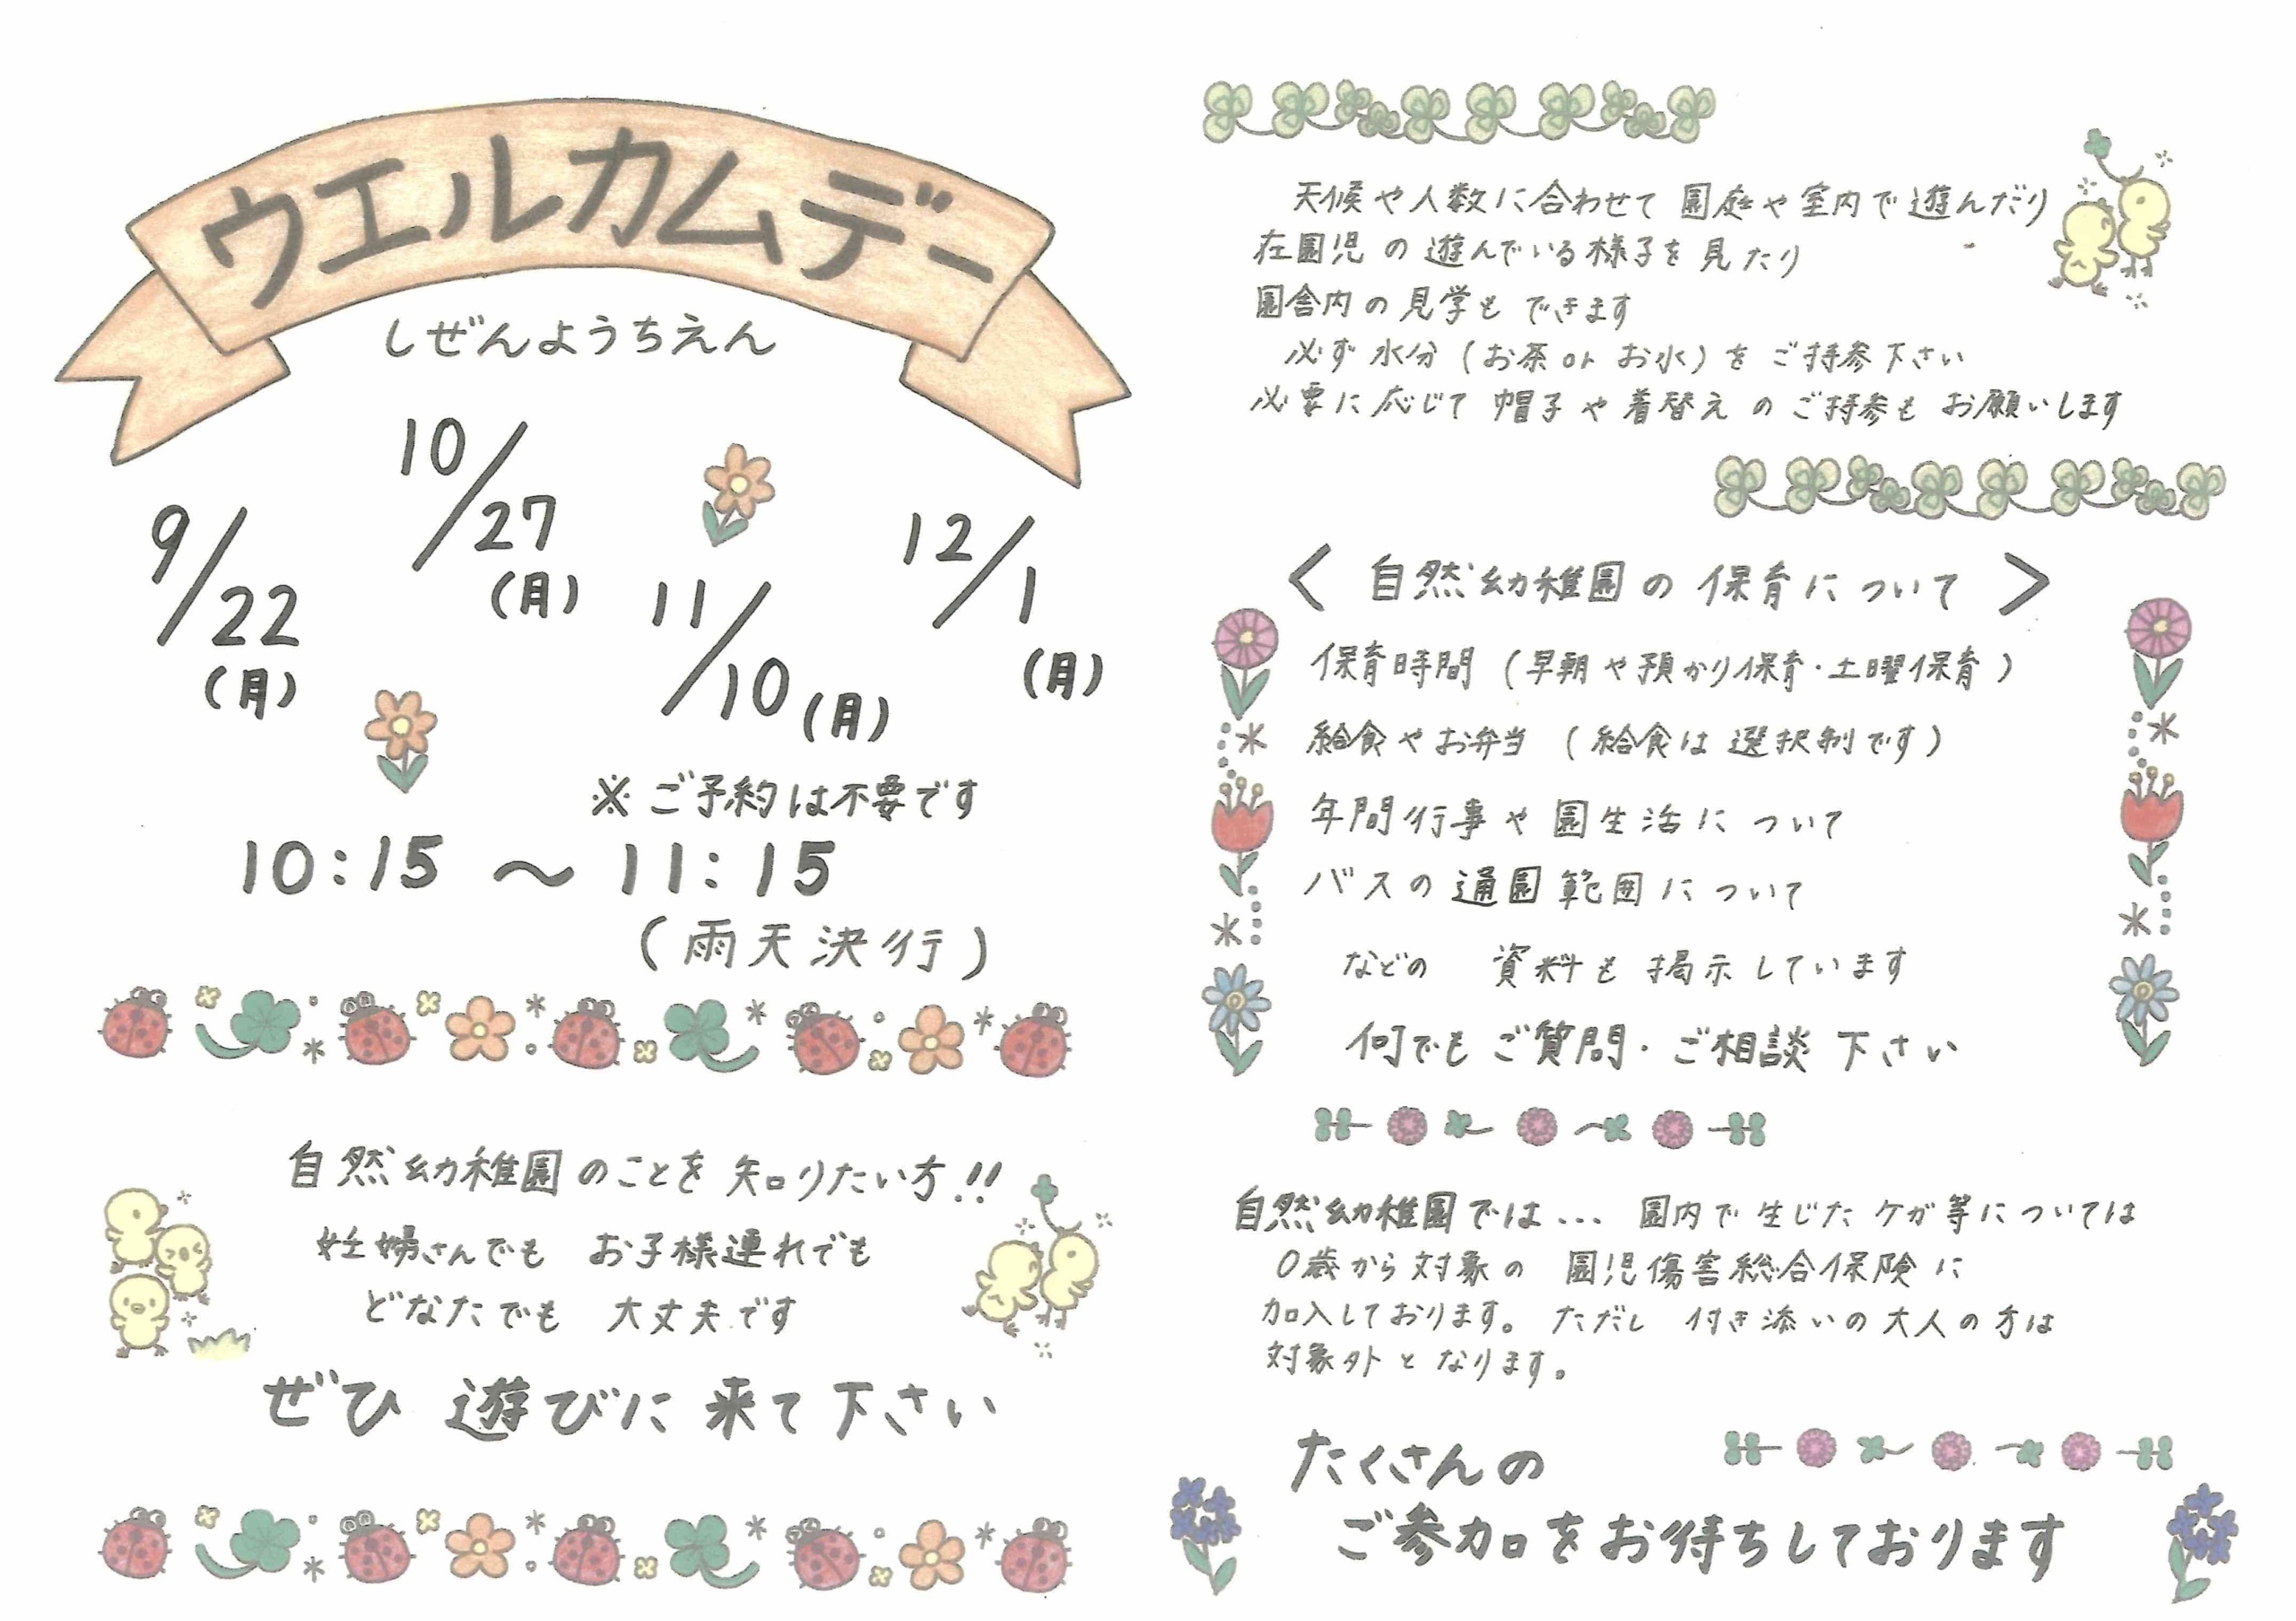 ウエルカムデー
しぜんようちえん
9/22
(月)
10/27
(月)
11/10(月)
12/1
(月)
※ご予約は不要です
10:15 ～ 11:15
(雨天決行)
自然幼稚園のことを 知りたい方!!
妊婦さんでも お子様連れでも
どなたでも 大丈夫です
ぜひ 遊びに 来て 下さい
天候や人数に合わせて 園庭や室内で遊んだり
在園児の遊んでいる様子を見たり
園舎内の見学も できます
必ず水分(お茶or お水)を ご持参下さい
必要に応じて 帽子や着替えのご持参も お願いします
< 自然幼稚園の保育について >
保育時間 (早朝や預かり保育・土曜保育)
給食やお弁当 (給食は選択制です)
年間行事や園生活に ついて
バスの通園範囲に ついて
などの 資料も 掲示しています
何でも ご質問・ご相談 下さい
自然幼稚園では… 園内で生じたケガ等については
0歳から対象の 園児傷害総合保険に
加入しております。ただし 付き添いの大人の方は
対象外と なります。
たくさんの
ご参加をお待ちしております